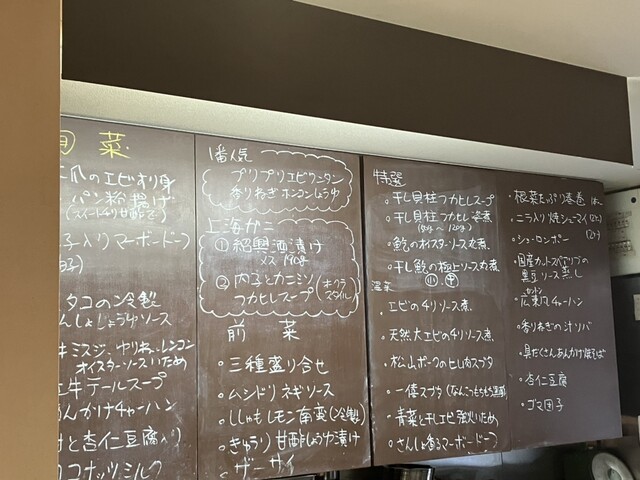 菜
爪のエビすり身
パン粉揚げ
(スイートチリ甘酢で)
子入りマーボードーフ
タコの冷製
んしょじょうゆソース
ミスジ、ゆりね、レンコン
オイスターソースいため
牛テールスープ
あんかけチャーハン
と杏仁豆腐入り
ココナッツミルク
1番人気
プリプリエビワンタン
香りねぎホンコンしょうゆ
上海カニ
① 紹興酒漬け
メス 190g
② 内子とカニミソ
フカヒレスープ
前菜
・三種盛り合せ
・ムシドリ ネギソース
・ししゃも レモン南蛮 (冷製)
・きゅうり 甘酢しょうゆ漬け
・ザーサイ
特選
・干し貝柱フカヒレスープ
・干し貝柱フカヒレ姿煮
・鮑のオイスターソース丸煮
・干し鮑の極上ソース丸煮
温菜
・エビのチリソース煮
・天然大エビのチリソース煮
・松山ポークのヒレ肉スブタ
・青菜と干しエビ強火いため
・さんしょ香るマーボードーフ
・根菜たっぷり春巻
・ニラ入り焼シューマイ
・ショーロンポー
・国産カットスペアリブの
黒豆ソース蒸し
・広東風チャーハン
・香りねぎの汁ソバ
・具だくさんあんかけ焼そば
・杏仁豆腐
・ゴマ団子